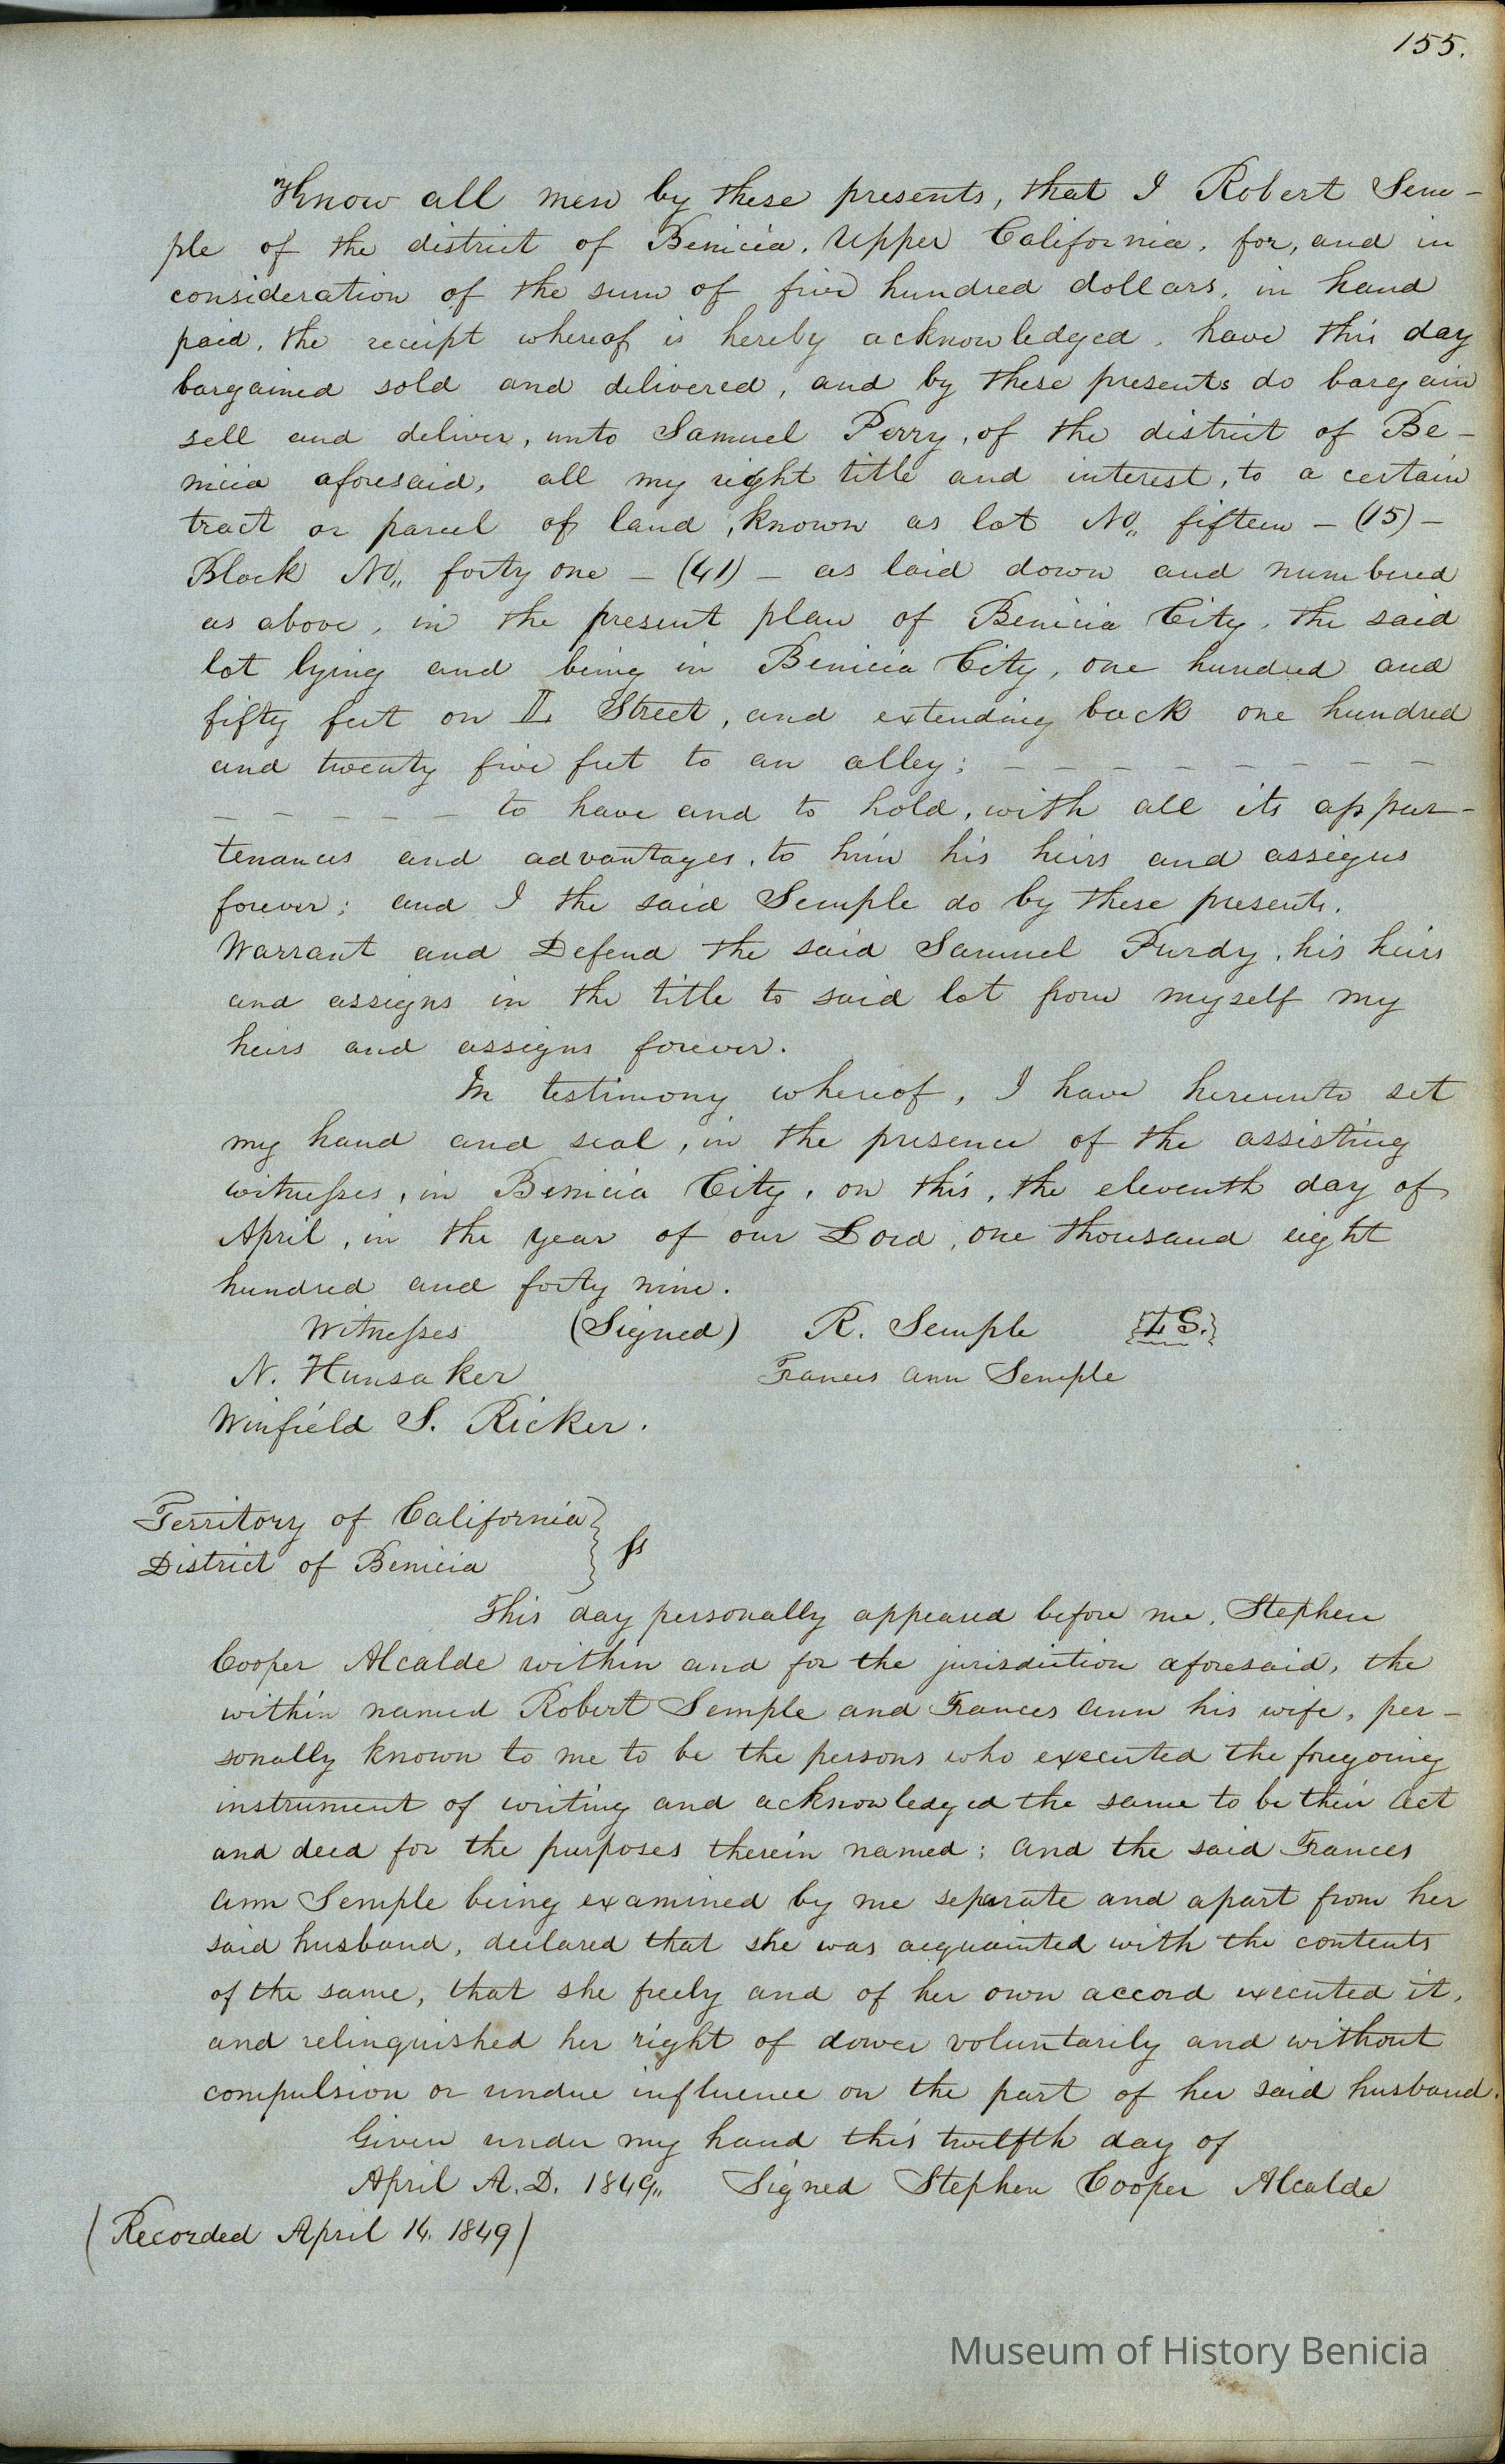 155.
Know all men by these presents, that I Robert Sem-
ple of the district of Benicia, Upper California, for, and in
consideration of the sum of five hundred dollars, in hand
paid, the receipt whereof is hereby acknowledged, have this day
bargained sold and delivered, and by these presents do bargain
sell and deliver, unto Samuel Perry, of the district of Be-
nicia aforesaid, all my right title and interest, to a certain
tract or parcel of land, known as lot No,, fifteen - (15) -
Block No,, forty one - (41) - as laid down and numbered
as above, in the present plan of Benicia City, the said
lot lying and being in Benicia City, one hundred and
fifty feet on I Street, and extending back one hundred
and twenty five feet to an alley; - - - - - - - -
- - - - - - to have and to hold, with all its appur-
tenances and advantages, to him his heirs and assigns
forever; and I the said Semple do by these presents,
Warrant and Defend the said Samuel Purdy, his heirs
and assigns in the title to said lot from myself my
heirs and assigns forever.
In testimony whereof, I have hereunto set
my hand and seal, in the presence of the assisting
witnesses, in Benicia City, on this, the eleventh day of
April, in the year of our Lord, one thousand eight
hundred and forty nine.
Witnesses (Signed) R. Semple {L S.}
N. Hunsaker Frances Ann Semple
Winfield S. Ricker.
Territory of California }
District of Benicia } ss
This day personally appeared before me, Stephen
Cooper Alcalde within and for the jurisdiction aforesaid, the
within named Robert Semple and Frances Ann his wife, per-
sonally known to me to be the persons who executed the foregoing
instrument of writing and acknowledged the same to be their act
and deed for the purposes therein named; and the said Frances
Ann Semple being examined by me separate and apart from her
said husband, declared that she was acquainted with the contents
of the same, that she freely and of her own accord executed it,
and relinquished her right of dower voluntarily and without
compulsion or undue influence on the part of her said husband.
Given under my hand this twelfth day of
April A.D. 1849,, Signed Stephen Cooper Alcalde
(Recorded April 14. 1849)
Museum of History Benicia